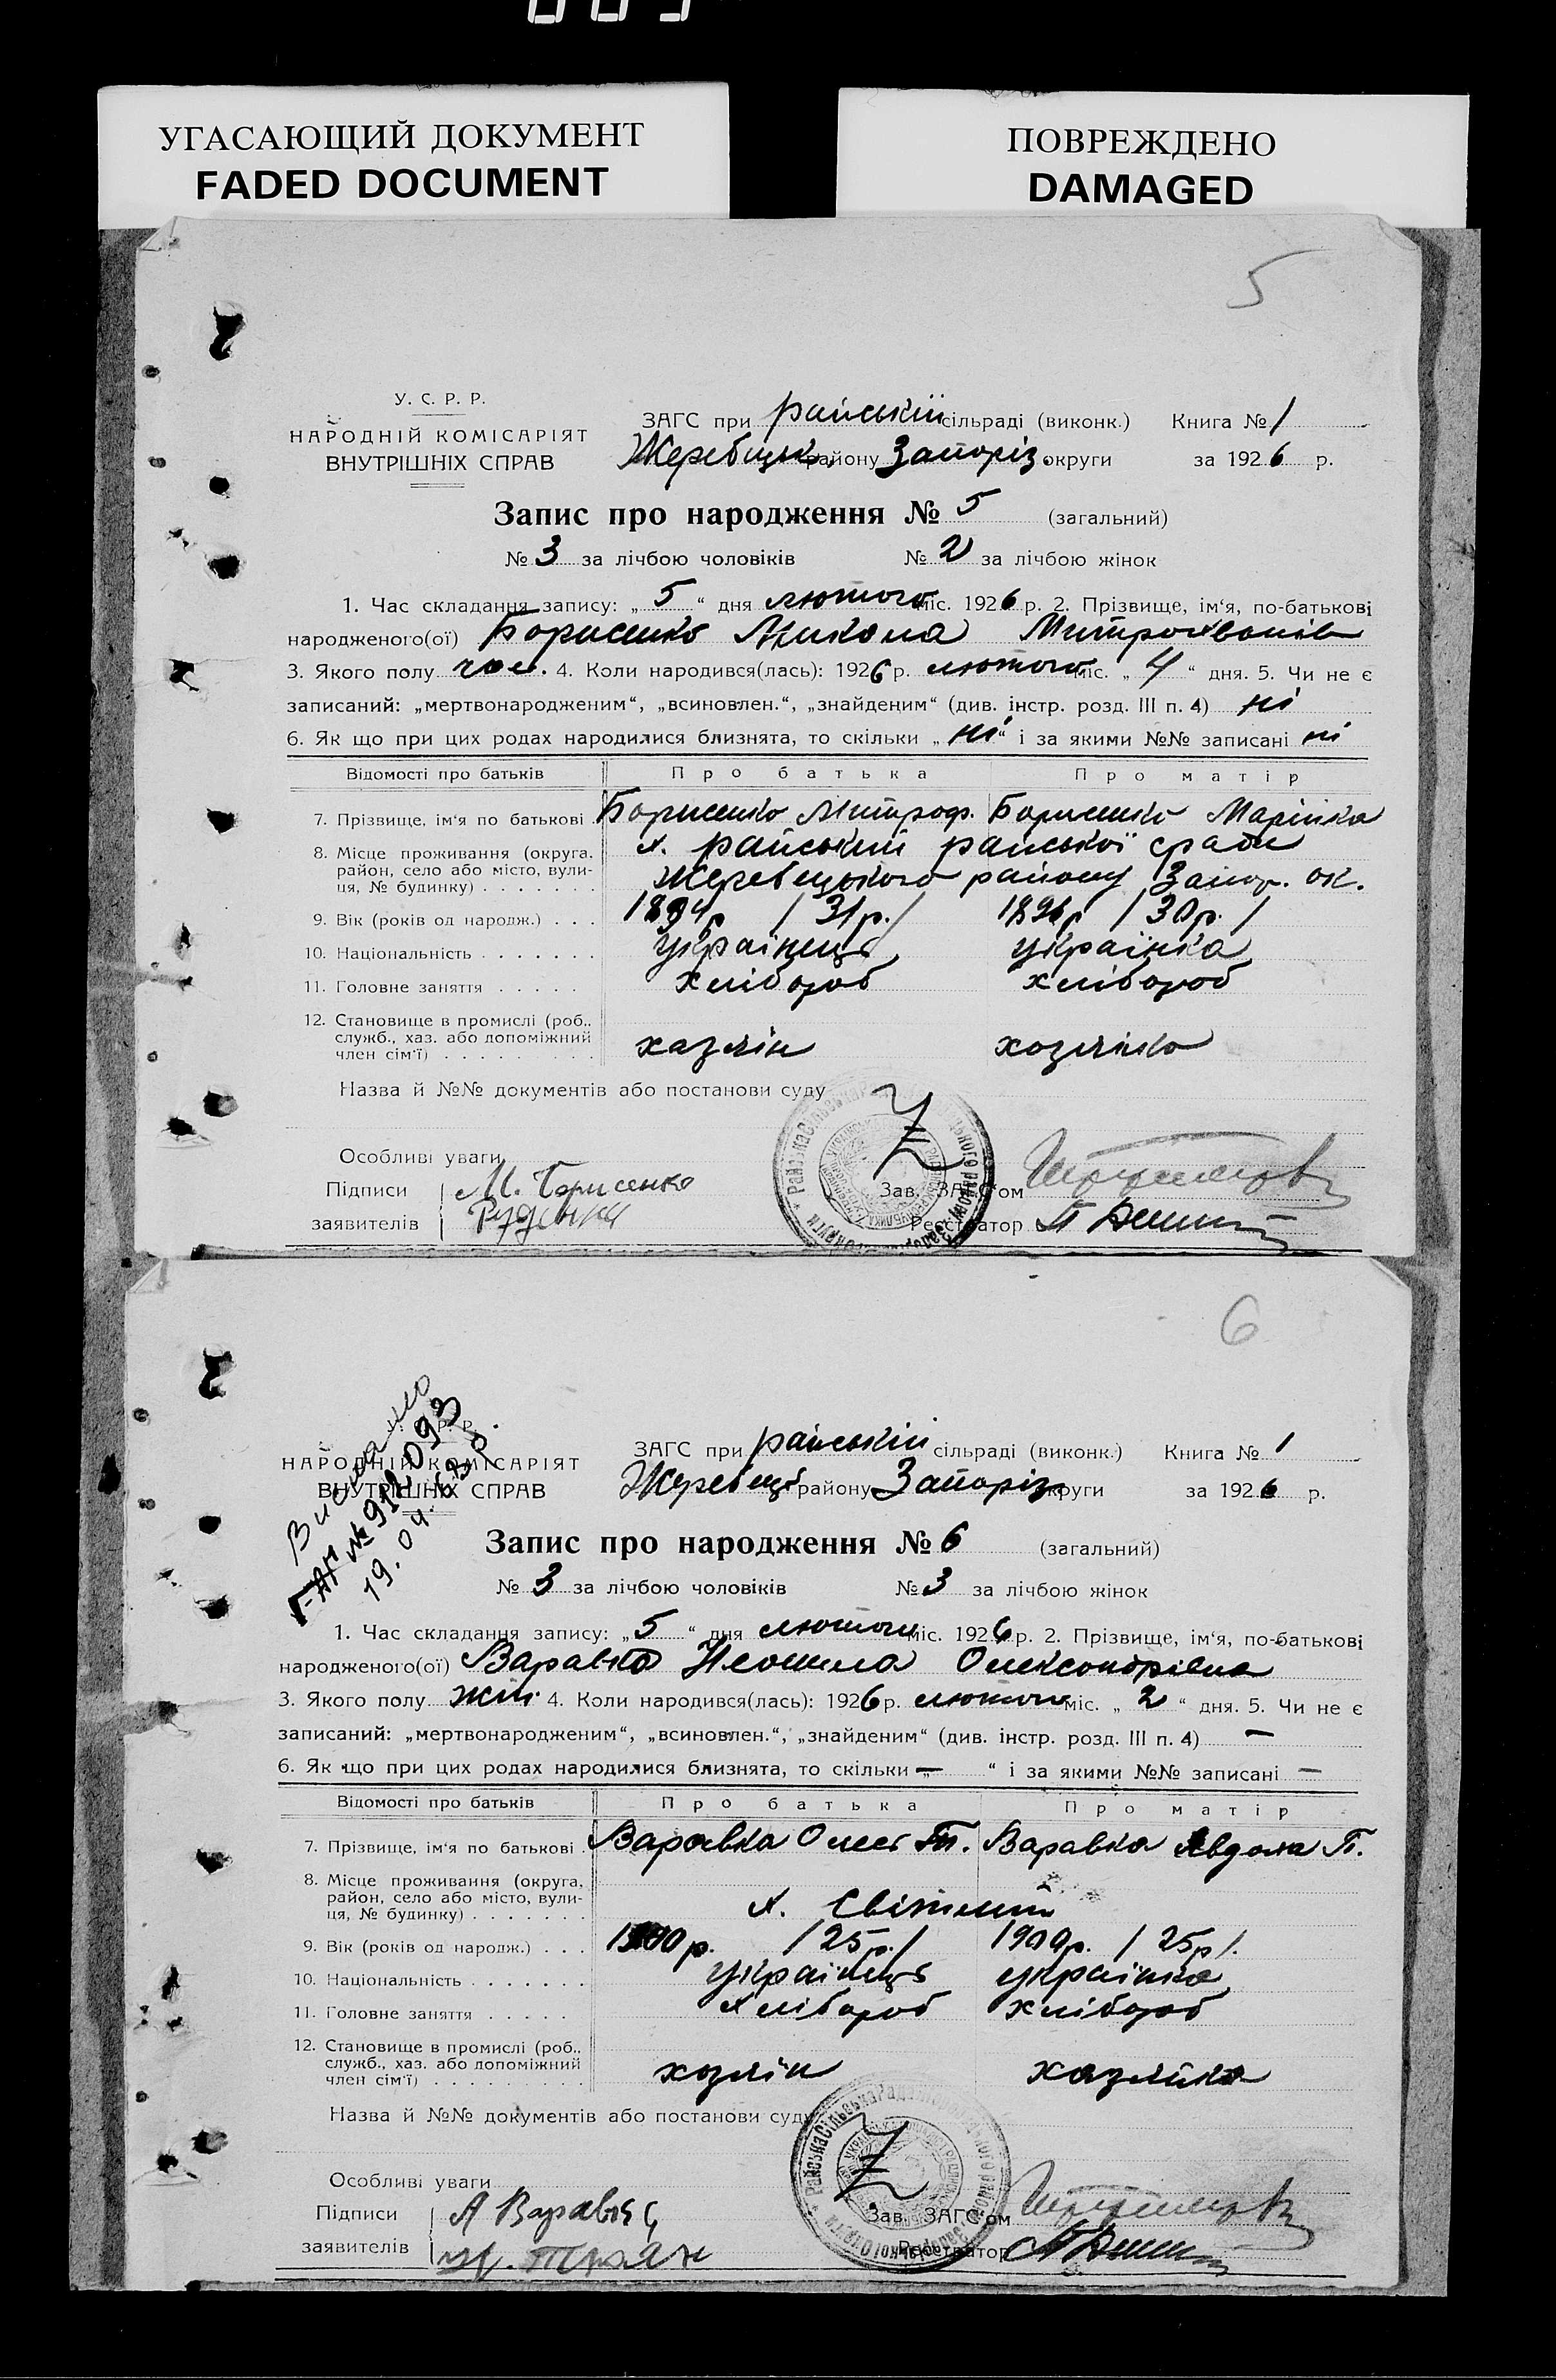 УГАСАЮЩИЙ ДОКУМЕНТ
FADED DOCUMENT
ПОВРЕЖДЕНО
DAMAGED
5
У. С. Р. Р.
НАРОДНІЙ КОМІСАРІЯТ
ВНУТРІШНІХ СПРАВ
ЗАГС при райській сільраді (виконк.) Книга № 1
Жеребецьк. району Запоріз. округи за 1926 р.
Запис про народження № 5 (загальний)
№ 3 за лічбою чоловіків № 2 за лічбою жінок
1. Час складання запису: „ 5 “ дня лютого міс. 1926 р. 2. Прізвище, ім'я, по-батькові
народженого(ої) Борисенко Микола Митрофанів
3. Якого полу чол. 4. Коли народився(лась): 1926 р. лютого міс. „ 4 “ дня. 5. Чи не є
записаний: „мертвонародженим“, „всиновлен.“, „знайденим“ (див. інстр. розд. III п. 4) ні
6. Як що при цих родах народилися близнята, то скільки „ ні “ і за якими №№ записані ні
Відомості про батьків Про батька Про матір
7. Прізвище, ім'я по батькові Борисенко Митроф. Борисенко Марійка
8. Місце проживання (округа, район, село або місто, вулиця, № будинку) х. райський райської сради
Жеребецького району Запор. ок.
9. Вік (років од народж.) 1894р /31р./ 1896р /30р./
10. Національність українець українка
11. Головне заняття хлібороб хлібороб
12. Становище в промислі (роб.,
служб., хаз. або допоміжний
член сім'ї) хазяін хозяйка
Назва й №№ документів або постанови суду
Особливі уваги
Підписи М. Борисенко Зав. ЗАГС'ом
заявителів Реєстратор
6
Видано
№ 912093
19.04.
У. С. Р. Р.
НАРОДНІЙ КОМІСАРІЯТ
ВНУТРІШНІХ СПРАВ
ЗАГС при райській сільраді (виконк.) Книга № 1
Жеребець району Запоріз округи за 1926 р.
Запис про народження № 6 (загальний)
№ 3 за лічбою чоловіків № 3 за лічбою жінок
1. Час складання запису: „ 5 “ дня лютого міс. 1926 р. 2. Прізвище, ім'я, по-батькові
народженого(ої) Варавка Неонила Олександрівна
3. Якого полу жін. 4. Коли народився(лась): 1926 р. лютого міс. „ 2 “ дня. 5. Чи не є
записаний: „мертвонародженим“, „всиновлен.“, „знайденим“ (див. інстр. розд. III п. 4) —
6. Як що при цих родах народилися близнята, то скільки „ — “ і за якими №№ записані —
Відомості про батьків Про батька Про матір
7. Прізвище, ім'я по батькові Варавка Олес Варавка Явдоха П.
8. Місце проживання (округа,
район, село або місто, вулиця, № будинку) х. Світлий
9. Вік (років од народж.) 1900р. /25р./ 1900р. /25р/.
10. Національність українець українка
11. Головне заняття хлібороб хлібороб
12. Становище в промислі (роб.,
служб., хаз. або допоміжний
член сім'ї) хозяін хазяйка
Назва й №№ документів або постанови суду
Особливі уваги
Підписи А Варавка Зав. ЗАГС'ом
заявителів Реєстратор